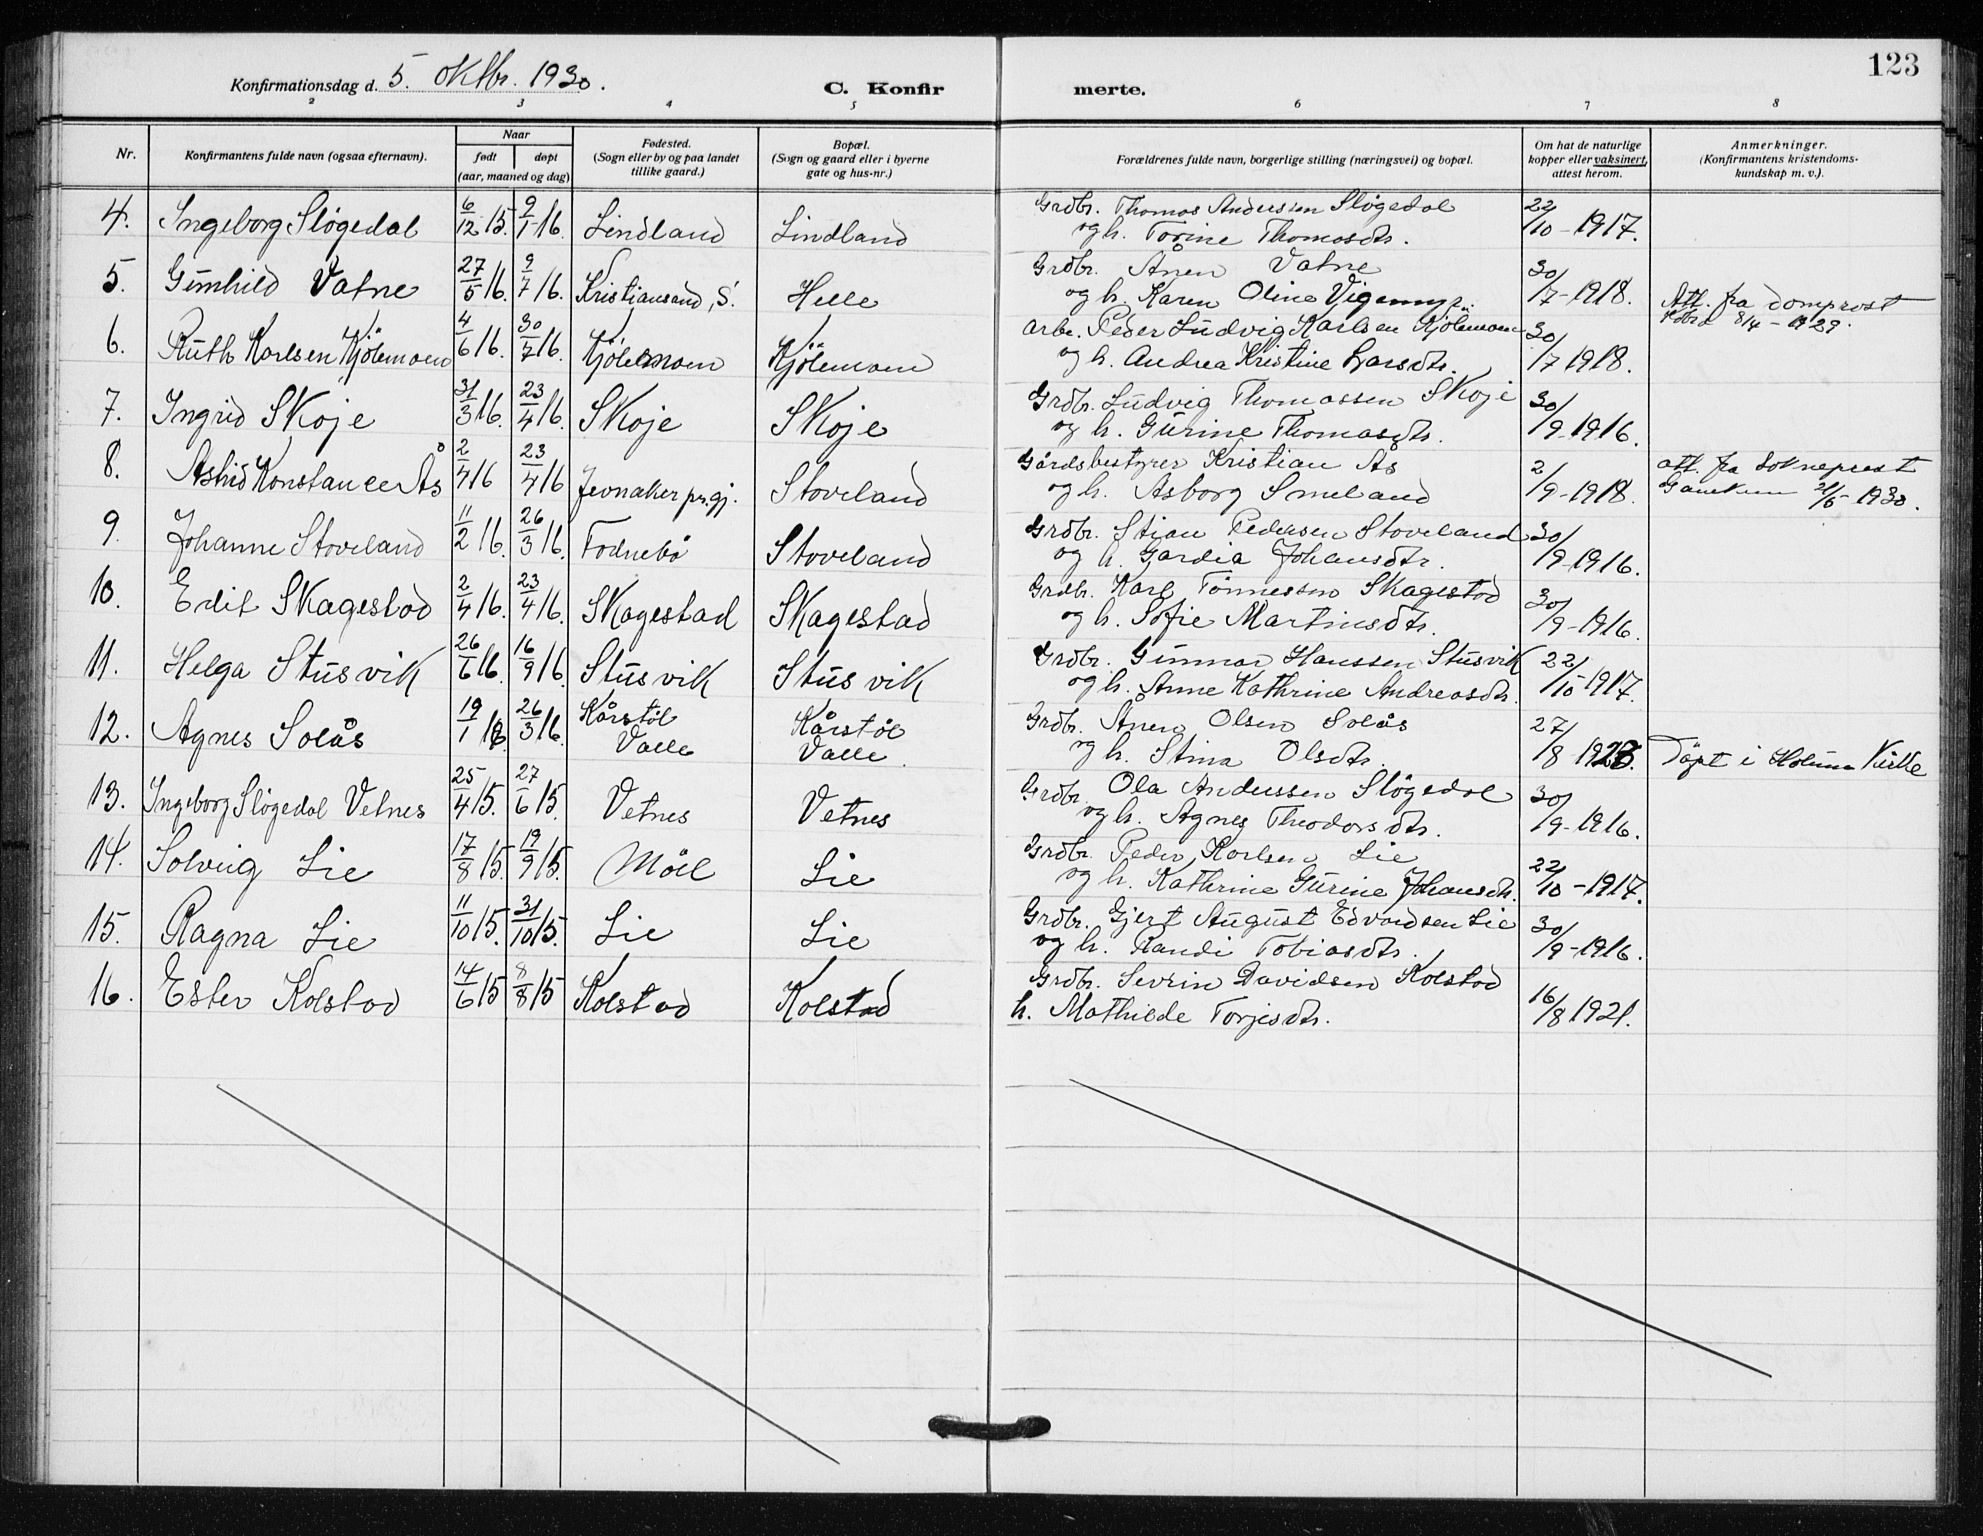 123
Konfirmationsdag d. 5. oktbr. 1930.
C. Konfirmerte.
2 3 4 5 6 7 8
Nr. | Konfirmantens fulde navn (ogsaa efternavn). | Naar født | døpt (aar, maaned og dag) | Fødested. (Sogn eller by og paa landet tillike gaard.) | Bopæl. (Sogn og gaard eller i byerne gate og hus-nr.) | Forældrenes fulde navn, borgerlige stilling (næringsvei) og bopæl. | Om hat de naturlige kopper eller vaksinert, attest herom. | Anmerkninger. (Konfirmantens kristendomskundskap m. v.).
4. Ingeborg Sløgedal 6/12 15. 9/1 16. Lindland Lindland Grdbr. Thomas Andersen Sløgedal
og h. Torine Thomasdtr. 22/10 - 1917.
5. Gunhild Vatne 27/5 16. 9/7 16. Kristiansand, S. Helle Grdbr. Ånen Vatne
og h. Karen Oline Vigemyr. 30/7 - 1918. Att. fra domprost
8/4 - 1929.
6. Ruth Karlsen Kjölemoen 4/6 16. 30/7 16. Kjölemoen Kjölemoen Arbr. Peder Ludvig Karlsen Kjölemoen
og h. Andrea Kristine Larsdtr. 30/7 1918.
7. Ingrid Skoje 31/3 16. 23/4 16. Skoje Skoje Grdbr. Ludvig Thomassen Skoje
og h. Gurine Thomasdtr. 30/9 - 1916.
8. Astrid Konstance Ås 2/4 16 23/4 16 Jevnaker pr.gj. Stoveland Gårdsbestyrer Kristian Ås
og h. Asborg Smeland 2/9 - 1918. att. fra sokneprest
21/6 - 1930.
9. Johanne Stoveland 11/2 16. 26/3 16. Fodnebö Stoveland Grdbr. Stian Pedersen Stoveland
og h. Gardia Johansdtr. 30/9 - 1916.
10. Edit Skagestad 2/4 16. 23/4 16. Skagestad Skagestad Grdbr. Karl Tönnessen Skagestad
og h. Sofie Martinsdtr. 30/9 - 1916.
11. Helga Stusvik 26/6 16. 16/9 16. Stusvik Stusvik Grdbr. Gunnar Hanssen Stusvik
og h. Anne Kathrine Andreasdtr. 22/10 - 1917.
12. Agnes Solås 19/1 16 26/3 16. Kårstöl
Valle Kårstöl
Valle. Grdbr. Ånen Olsen Solås
og h. Stina Olsdtr. 27/8 Döpt i Holum Kirke
13. Ingeborg Sløgedal Vetnes 25/4 15. 27/6 15. Vetnes Vetnes Grdbr. Ola Anderssen Sløgedal
og h. Agnes Theodorsdtr. 30/9 - 1916.
14. Solveig Lie 17/8 15. 19/9 15. Möll Lie Grdbr. Peder Karlsen Lie
og h. Kathrine Gurine Johansdtr. 22/10 - 1917.
15. Ragna Lie 11/10 15. 31/10 15. Lie Lie Grdbr. Gjert August Edvardsen Lie
og h. Randi Tobiasdtr. 30/9 - 1916.
16. Ester Kolstad 14/6 15 8/8 15 Kolstad Kolstad Grdbr. Sevrin Davidsen Kolstad
h. Mathilde Torjesdtr. 16/8 1921.